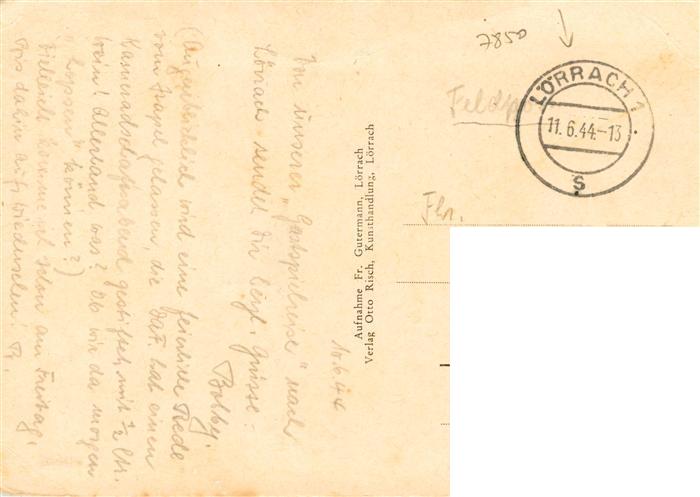 0587
LÖRRACH 1
11.6.44.-13
s
Feldp
Fhr.
Aufnahme Fr. Gutermann, Lörrach
Verlag Otto Risch, Kunsthandlung, Lörrach
10.6.44
Von unserer „Gastspielreise" nach
Lörrach sendet dir herzl. Grüsse
Bobby.
(Augenblicklich wird eine feierliche Rede
vom Stapel gelassen, die Batt. hat einen
Kameradschaftsabend gestiftet, mit ½ Ltr.
Wein! Allerhand was? Ob wir da morgen
„hopsen" können?)
Vielleicht komme ich schon am Freitag,
Bis dahin auf Wiedersehen!